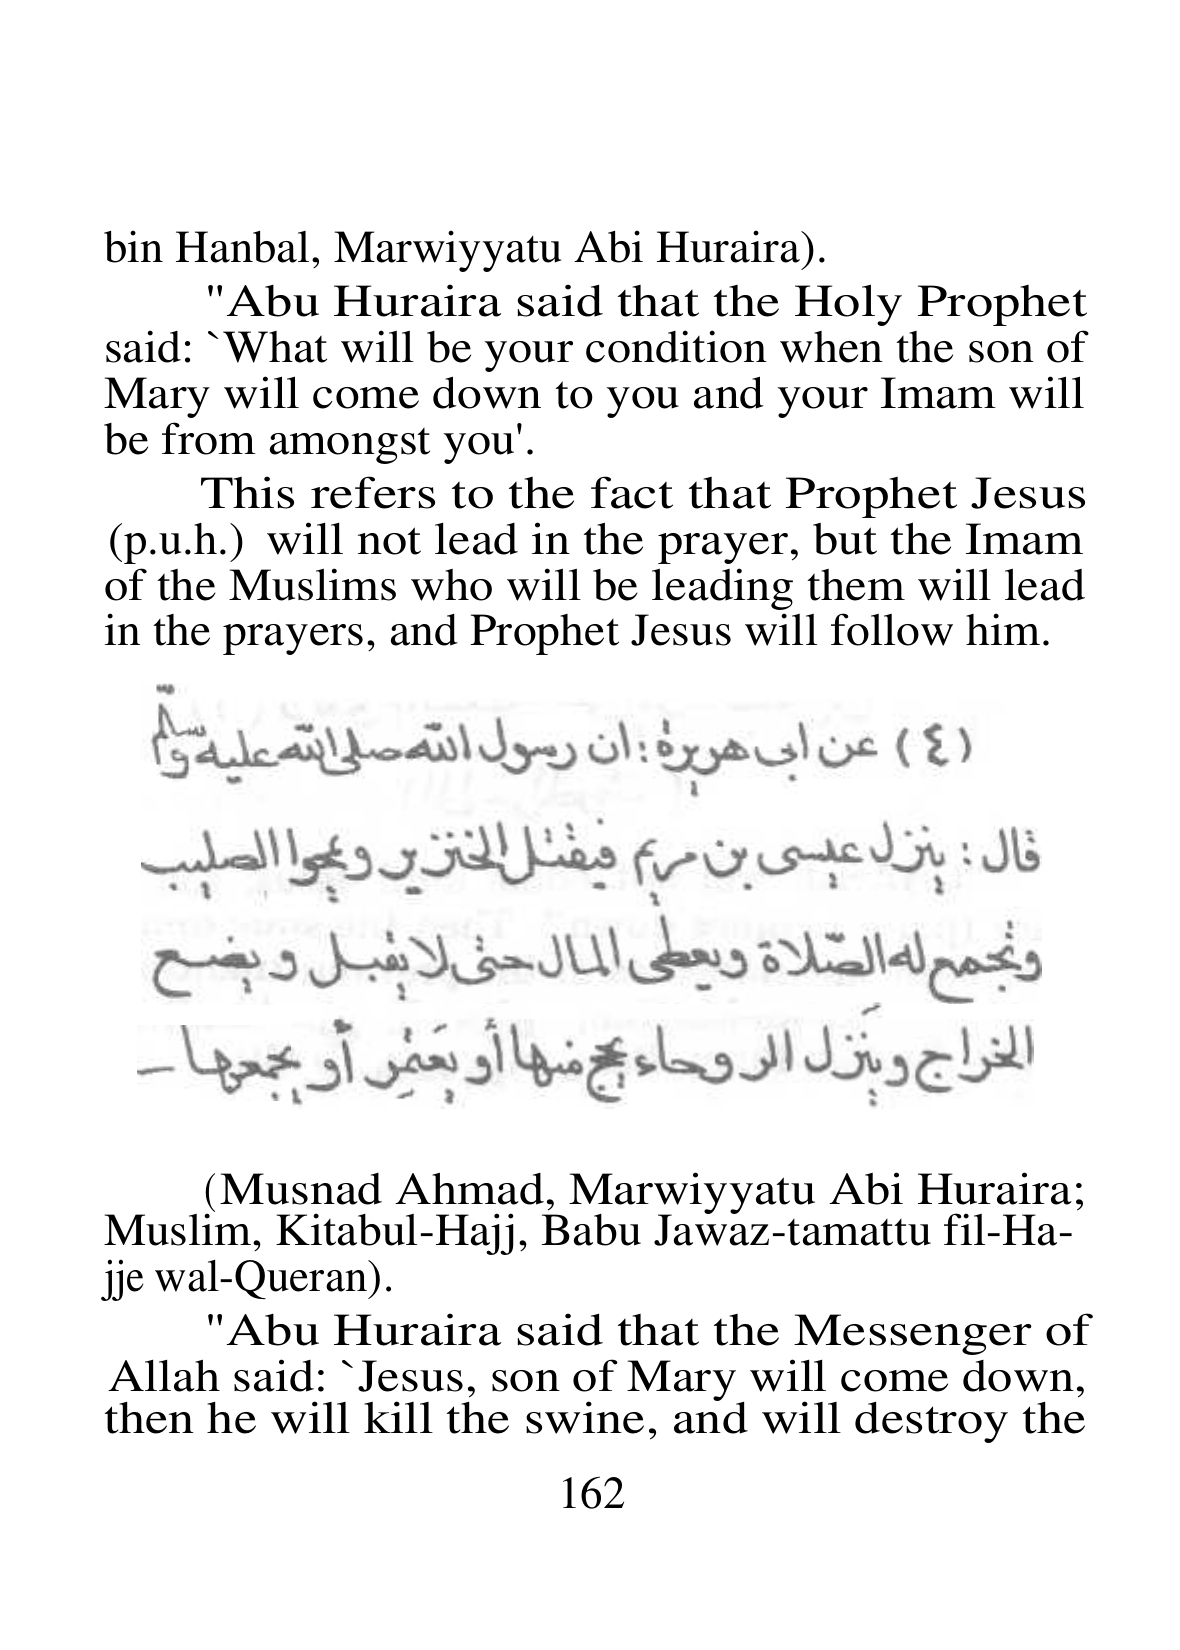 bin Hanbal, Marwiyyatu Abi Huraira).
"Abu Huraira said that the Holy Prophet
said: `What will be your condition when the son of
Mary will come down to you and your Imam will
be from amongst you'.
This refers to the fact that Prophet Jesus
(p.u.h.) will not lead in the prayer, but the Imam
of the Muslims who will be leading them will lead
in the prayers, and Prophet Jesus will follow him.
(٤) عن ابى هريرة: ان رسول الله صلى الله عليه وسلّم
قال: ينزل عيسى بن مريم فيقتل الخنزير ويمحوا الصليب
وتجمع له الصّلاة ويعطى المال حتى لا يقبل ويضع
الخراج وينزل الروحاء يحج منها أو يعتمر أو يجمعها –
(Musnad Ahmad, Marwiyyatu Abi Huraira;
Muslim, Kitabul-Hajj, Babu Jawaz-tamattu fil-Ha-
jje wal-Queran).
"Abu Huraira said that the Messenger of
Allah said: `Jesus, son of Mary will come down,
then he will kill the swine, and will destroy the
162